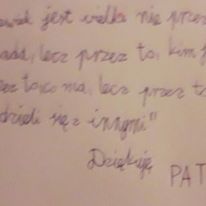 owiek jest wielki nie przez
ada, lecz przez to, kim j
zez to, co ma, lecz przez to
dzieli się z innymi"
Dziękuję
PAT